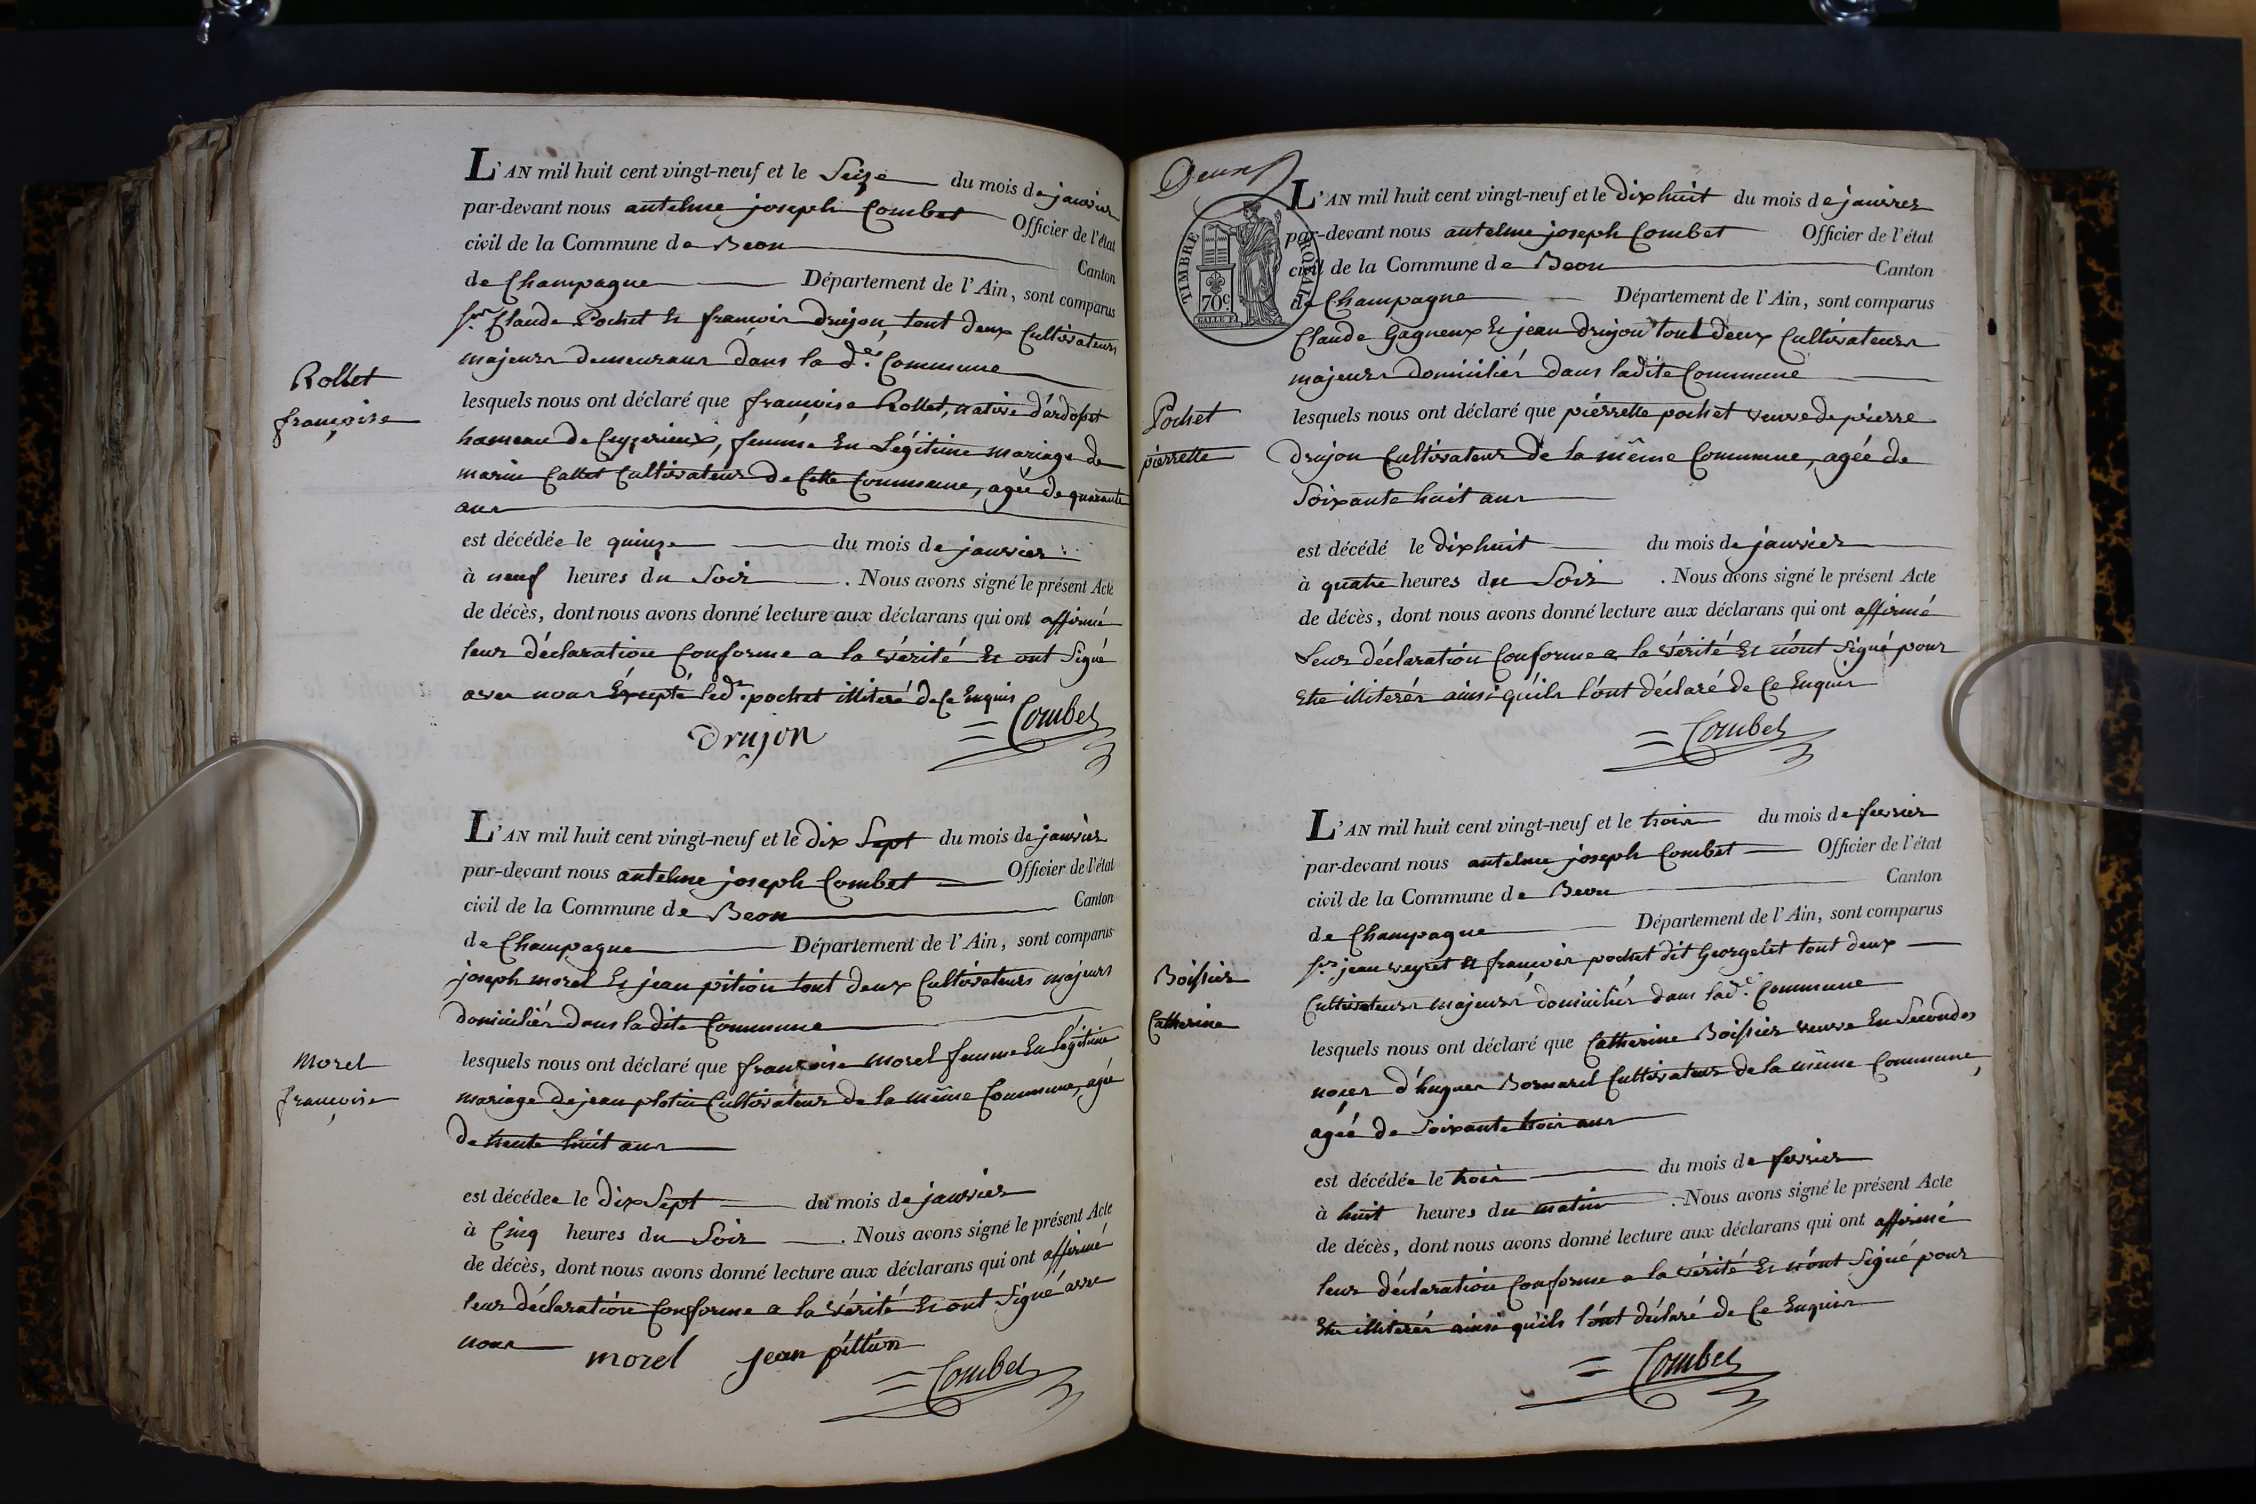 L'AN mil huit cent vingt-neuf et le Seize du mois de janvier
par-devant nous antelme joseph Combet Officier de l'état
civil de la Commune de Beon Canton
de Champagne Département de l'Ain, sont comparus
Srs Claude Pochet Et francois Drujon, tout deux Cultivateurs
majeurs demeurans dans la dte Commune
Rollet
francoise
lesquels nous ont déclaré que francoise Rollet, native d'ardosset
hameau de Cuzerieux, femme En Légitime mariage de
marin Callet Cultivateur de Cette Commune, agée de quarante
ans
est décédée le quinze du mois de janvier
à neuf heures du Soir. Nous avons signé le présent Acte
de décès, dont nous avons donné lecture aux déclarans qui ont affirmé
leur déclaration Conforme a la vérité Et ont Signé
avec nous Exepté led. pochet illiteré de Ce Enquis
Drujon Combet
L'AN mil huit cent vingt-neuf et le dix Sept du mois de janvier
par-devant nous antelme joseph Combet Officier de l'état
civil de la Commune de Beon Canton
de Champagne Département de l'Ain, sont comparus
joseph morel Et jean pition tout deux Cultivateurs majeurs
domiciliés dans la dite Commune
morel
francoise
lesquels nous ont déclaré que francoise morel femme En Légitime
mariage de jean plotin Cultivateur de la même Commune, agée
de trente huit ans
est décédée le dix Sept du mois de janvier
à Cinq heures du Soir. Nous avons signé le présent Acte
de décès, dont nous avons donné lecture aux déclarans qui ont affirmé
leur déclaration Conforme a la vérité Et ont Signé avec
nous
morel jean pittion
Combet
Deux
TIMBRE ROYAL
70c
L'AN mil huit cent vingt-neuf et le dixhuit du mois de janvier
par-devant nous antelme joseph Combet Officier de l'état
civil de la Commune de Beon Canton
de Champagne Département de l'Ain, sont comparus
Claude Gagneux Et jean Drujon tout deux Cultivateurs
majeurs domiciliés dans ladite Commune
Pochet
pierrette
lesquels nous ont déclaré que piérrette pochet veuve de piérre
Drujon Cultivateur de la même Commune, agée de
Soixante huit ans
est décédé le dixhuit du mois de janvier
à quatre heures du Soir. Nous avons signé le présent Acte
de décès, dont nous avons donné lecture aux déclarans qui ont affirmé
Leur déclaration Conforme a la vérité Et n'ont Signé pour
Etre illiterés ainsi qu'ils l'ont déclaré de Ce Enquis
Combet
L'AN mil huit cent vingt-neuf et le trois du mois de fevrier
par-devant nous antelme joseph Combet Officier de l'état
civil de la Commune de Beon Canton
de Champagne Département de l'Ain, sont comparus
Srs jean veyret Et francois pochet dit Georgelet tout deux
Cultivateurs majeurs domiciliés dans lade Commune
Boissier
Catherine
lesquels nous ont déclaré que Catherine Boissier veuve En Secondes
noces d'hugues Bornarel Cultivateur de la même Commune,
agée de Soixante trois ans
est décédée le trois du mois de fevrier
à huit heures du matin. Nous avons signé le présent Acte
de décès, dont nous avons donné lecture aux déclarans qui ont affirmé
leur déclaration Conforme a la vérité Et n'ont Signé pour
Etre illiterés ainsi qu'ils l'ont déclaré de Ce Enquis
Combet